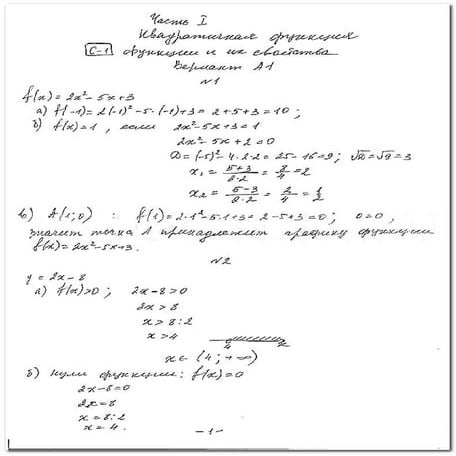 Часть I
Квадратичная функция
С-1 Функции и их свойства
Вариант А1
№1
f(x) = 2x² - 5x + 3
а) f(-1) = 2(-1)² - 5·(-1) + 3 = 2 + 5 + 3 = 10 ;
б) f(x) = 1 , если 2x² - 5x + 3 = 1
2x² - 5x + 2 = 0
D = (-5)² - 4·2·2 = 25 - 16 = 9 ; √D = √9 = 3
x₁ = (5+3)/(2·2) = 8/4 = 2
x₂ = (5-3)/(2·2) = 2/4 = 1/2
в) А(1; 0) : f(1) = 2·1² - 5·1 + 3 = 2 - 5 + 3 = 0 ; 0 = 0 ,
значит точка А принадлежит графику функции
f(x) = 2x² - 5x + 3.
№2
y = 2x - 8
а) f(x) > 0 ; 2x - 8 > 0
2x > 8
x > 8 : 2
x > 4 4 x
x ∈ (4 ; +∞)
б) нули функции: f(x) = 0
2x - 8 = 0
2x = 8
x = 8 : 2
x = 4.
- 1 -